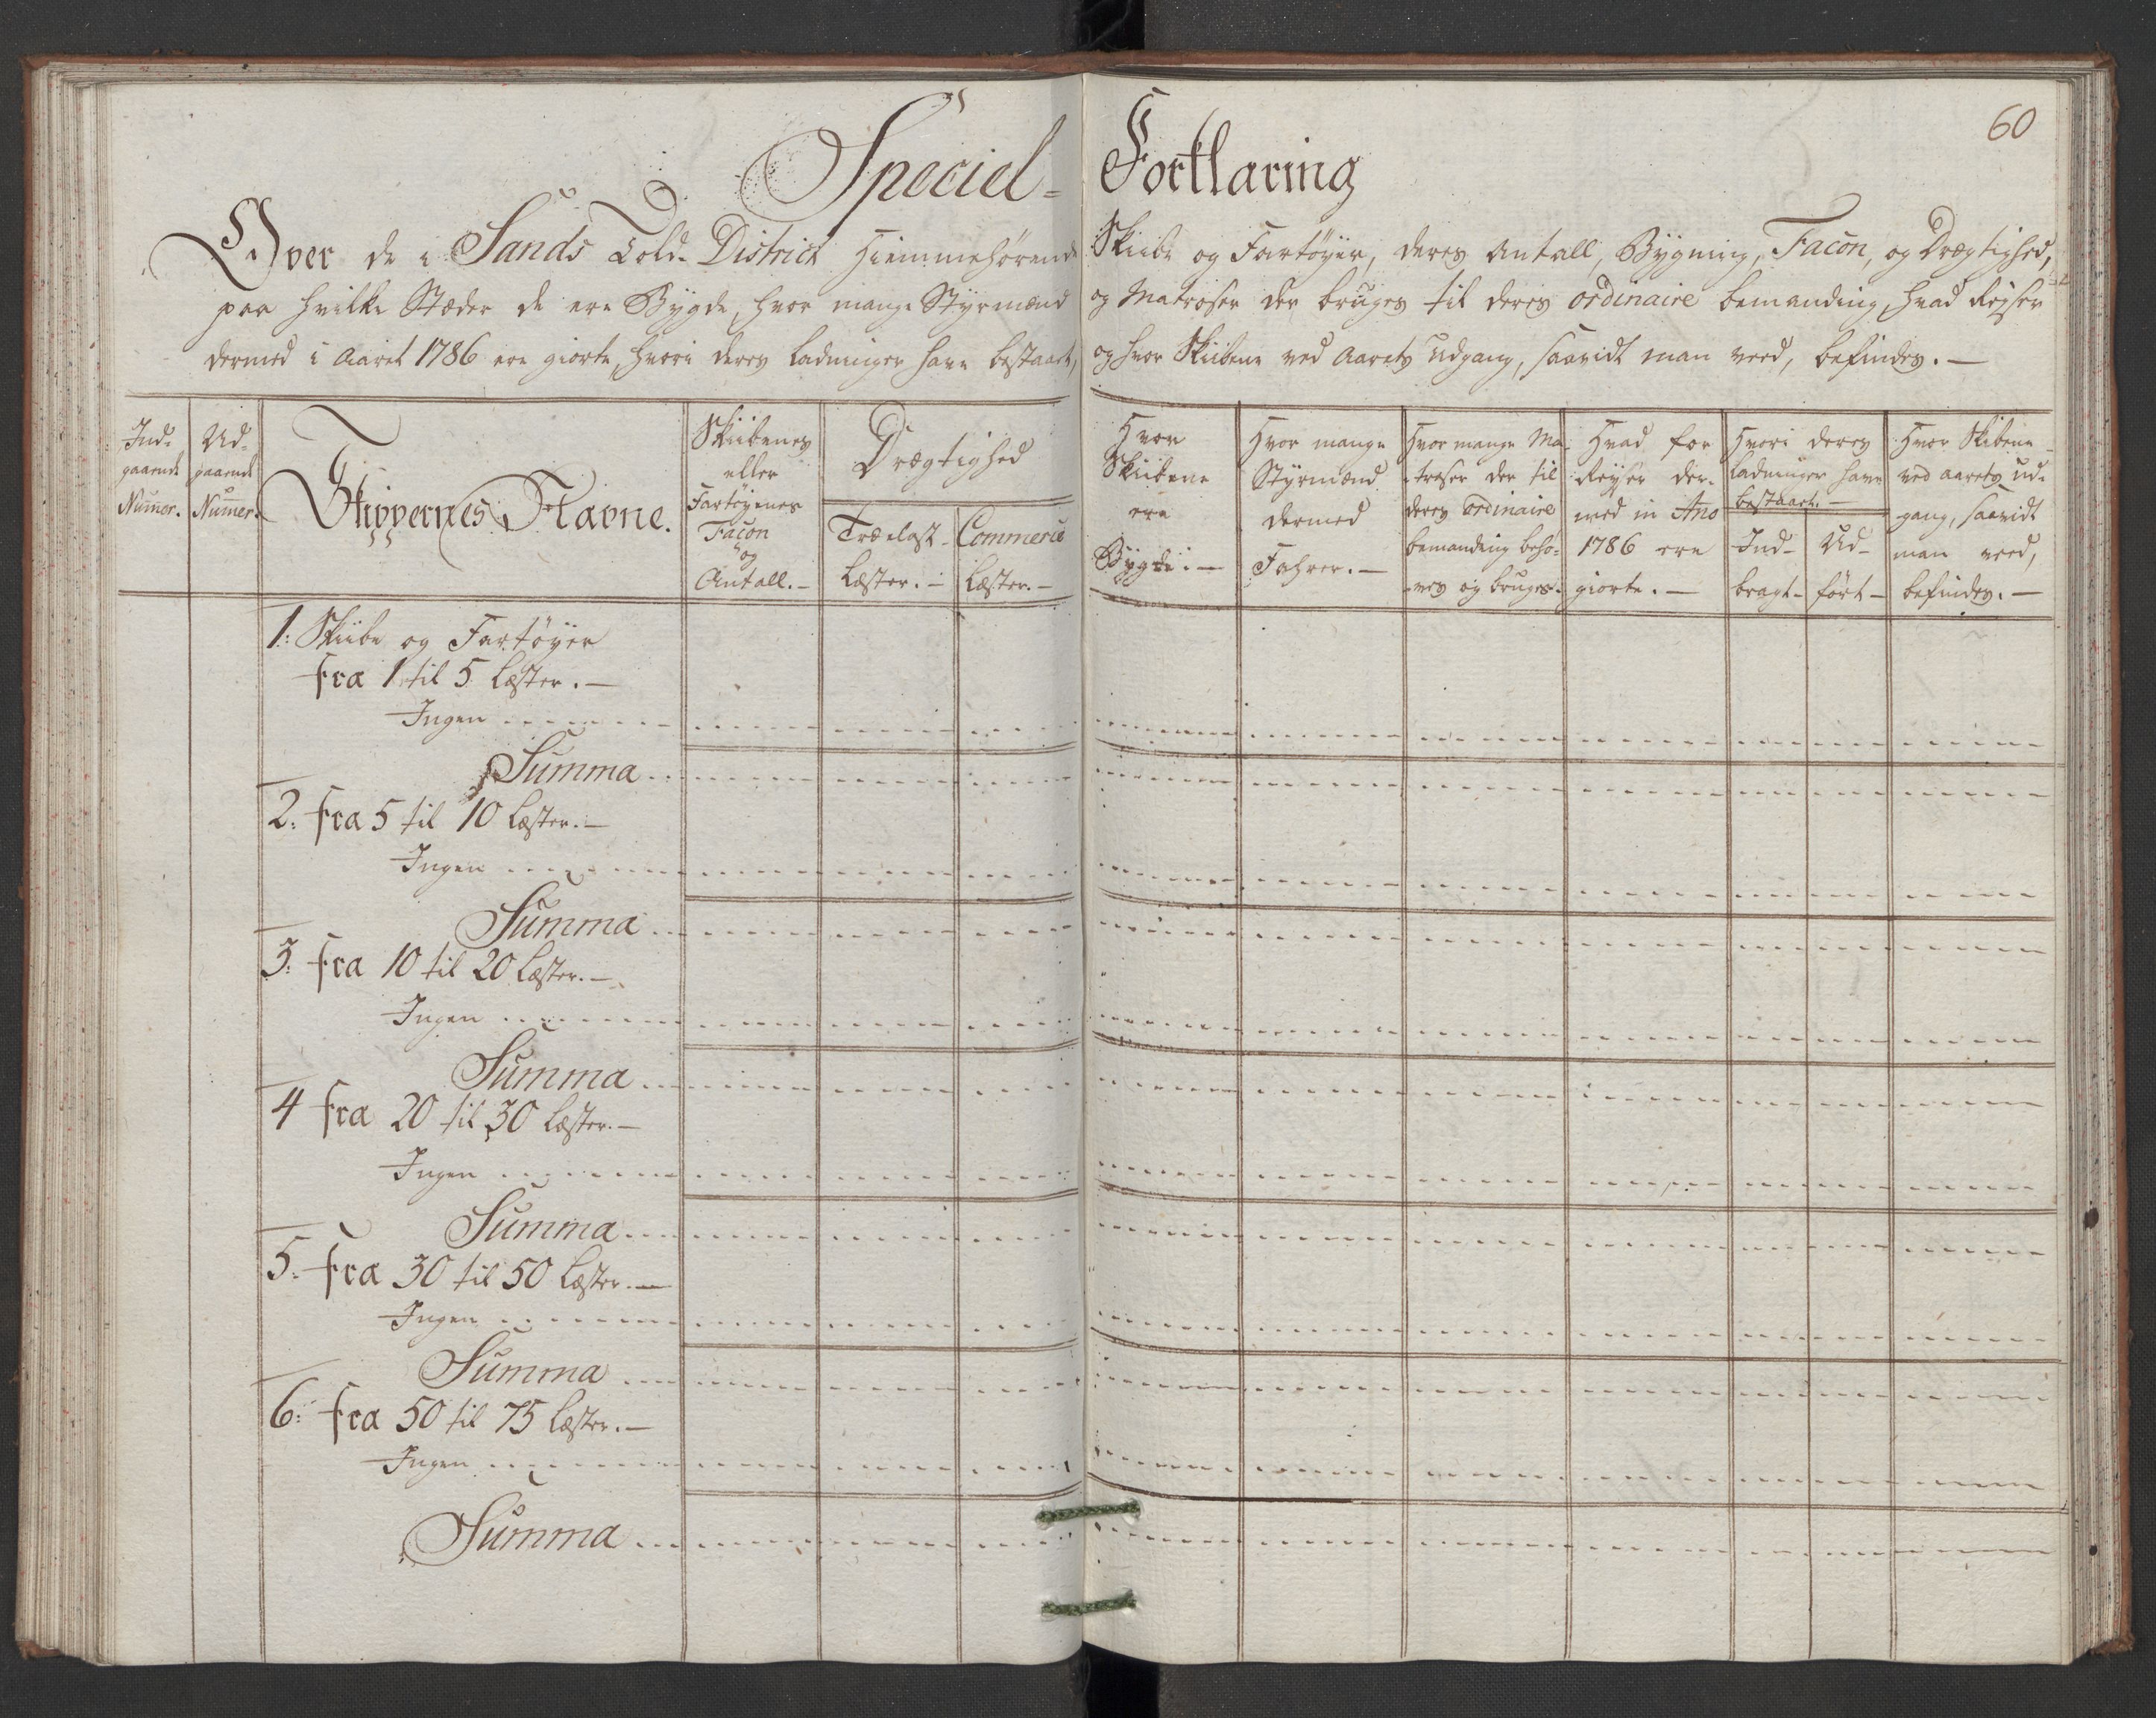 60
Speciel- Forklaring
Over de i Sands Told-District Hiemmehørende Skiibe og Fartøyer, deres Antall, Bÿgning, Facon, og Drægtighed,
paa hvilke Stæder de ere Bÿgde, hvor mange Stÿrmænd og Matroser der bruges til deres ordinaire bemanding, hvad Reÿser
dermed i Aaret 1786 ere giorte, hvori deres Ladninger have bestaaet, og hvor Skibene ved Aarets Udgang, saavidt man veed, befindes.—
Ind-
gaaende
Numer.
Ud-
gaaende
Numer.
Skippernes Navne.
Skiibenes
eller
Fartøyenes
Facon
og
Antall.—
Drægtighed
Trælast-
Læster.—
Commerce
Læster.—
Hvor
Skibene
ere
Bÿgde:—
Hvor mange
Stÿrmænd
dermed
Fahrer.—
Hvor mange Ma-
troser der til
deres ordinaire
bemanding behø-
ves og bruges.
Hvad for
Reÿser der-
med in Ano
1786 ere
giorte.—
Hvori deres
Ladninger have
bestaaet.—
Ind-
bragt-
Ud-
ført-
Hvor Skibene
ved Aarets Ud-
gang, saavidt
man veed,
befindes.—
1: Skiibe og Fartøÿer
fra 1 til 5 Læster.—
Ingen
Summa
2: fra 5 til 10 Læster.—
Ingen
Summa
3: fra 10 til 20 Læster.—
Ingen
Summa
4 fra 20 til 30 Læster.—
Ingen
Summa
5: fra 30 til 50 Læster.—
Ingen
Summa
6: fra 50 til 75 Læster.—
Ingen
Summa